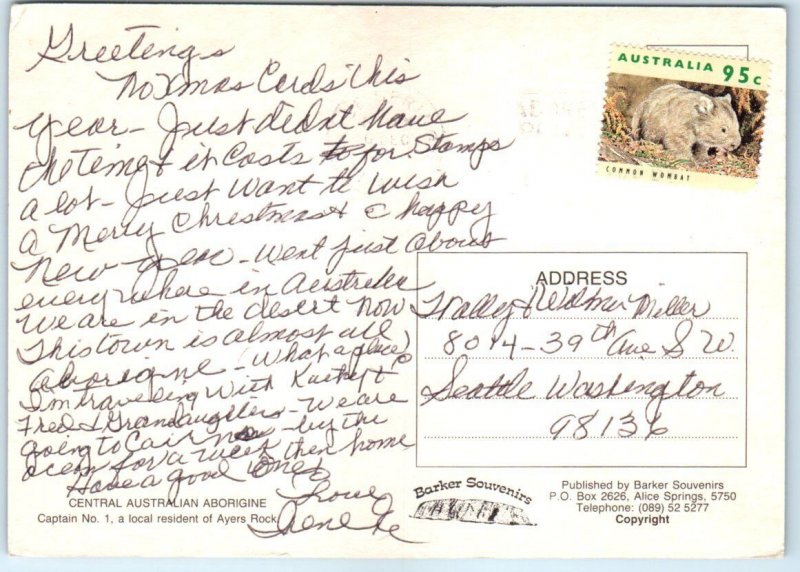 Greetings
No Xmas Cards this
year - Just didnt have
the time & it Costs to for Stamps
a lot - just want to wish
a Merry Christmas & a happy
New year - Went just about
everywhere in Australia
We are in the desert Now
This town is almost all
Aborigine - (What a place)
I'm traveling With Kathy &
Fred & Grandaughters - We are
going to Cairns by the
ocean for a week then home
Have a good One
Love
Irene
AUSTRALIA 95c
COMMON WOMBAT
ADDRESS
Wally & Miller
8014-39th Ave S.W.
Seattle Washington
98136
CENTRAL AUSTRALIAN ABORIGINE
Captain No. 1, a local resident of Ayers Rock
Barker Souvenirs
Published by Barker Souvenirs
P.O. Box 2626, Alice Springs, 5750
Telephone: (089) 52 5277
Copyright